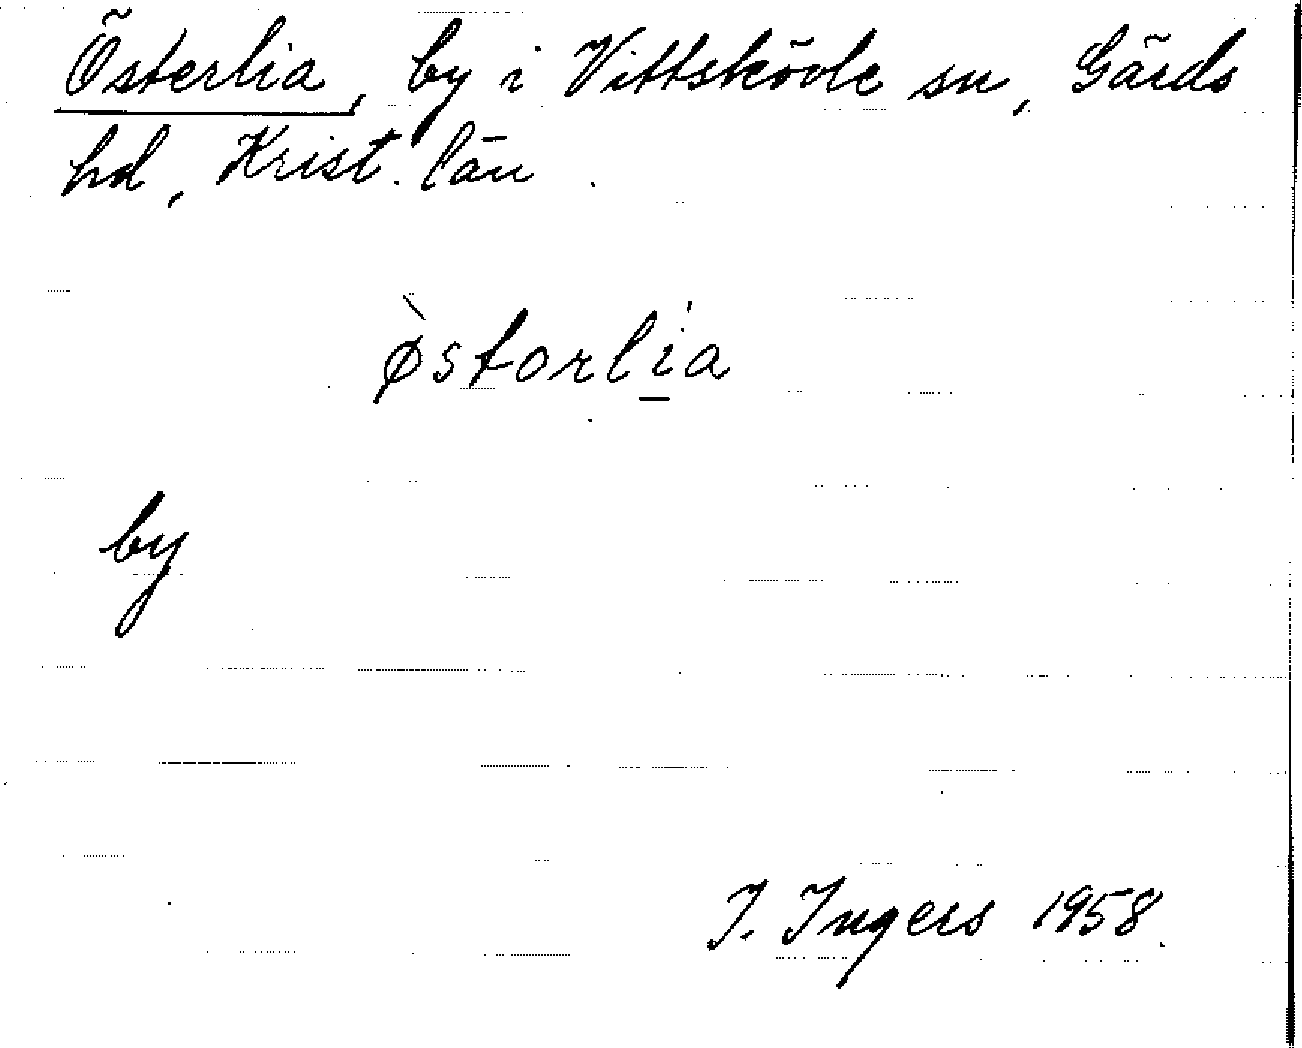 Österlia, by i Vittskövle sn, Gärds
hd, Krist. län.
ø̀storlí̠a
by
I. Ingers 1958.